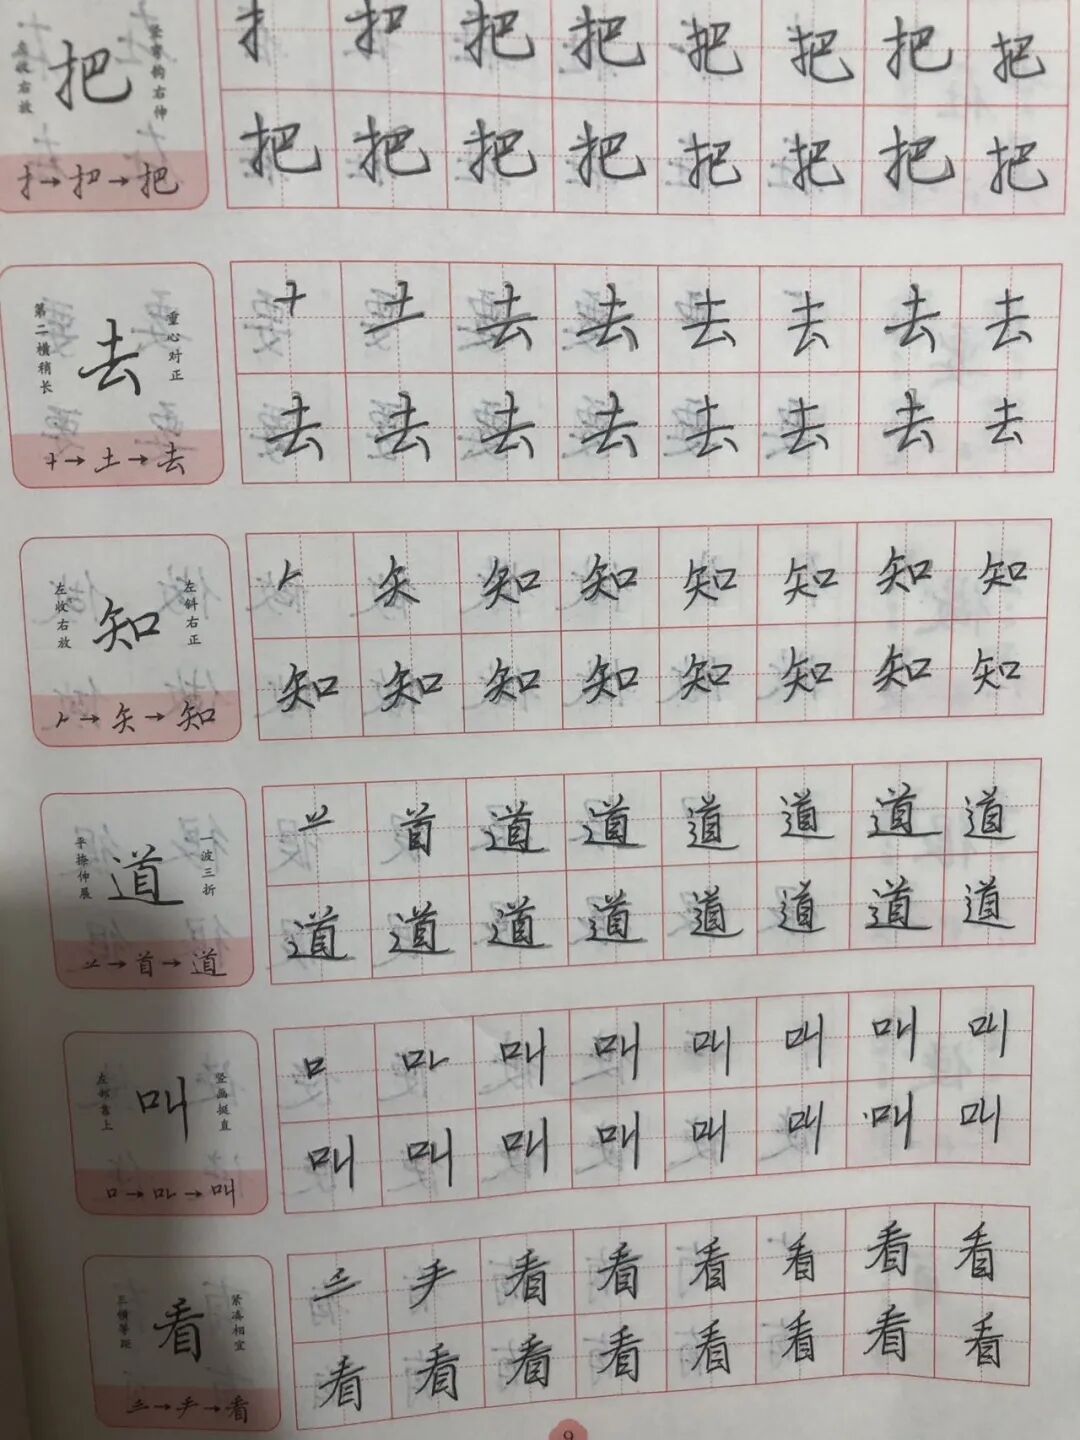 左收右放 把 竖弯钩右伸
扌→扌巴→把
扌 把 把 把 把 把 把
把 把 把 把 把 把 把 把
第二横稍长 去 重心对正
十→土→去
十 土 去 去 去 去 去 去
去 去 去 去 去 去 去 去
左收右放 知 左斜右正
𠂉→矢→知
𠂉 矢 知 知 知 知 知 知
知 知 知 知 知 知 知 知
平捺伸展 道 一波三折
䒑→首→道
䒑 首 道 道 道 道 道 道
道 道 道 道 道 道 道 道
左部靠上 叫 竖画挺直
口→叫
口 叫 叫 叫 叫 叫 叫
叫 叫 叫 叫 叫 叫 叫 叫
三横等距 看 紧凑相宜
三→手→看
三 手 看 看 看 看 看 看
看 看 看 看 看 看 看 看
9